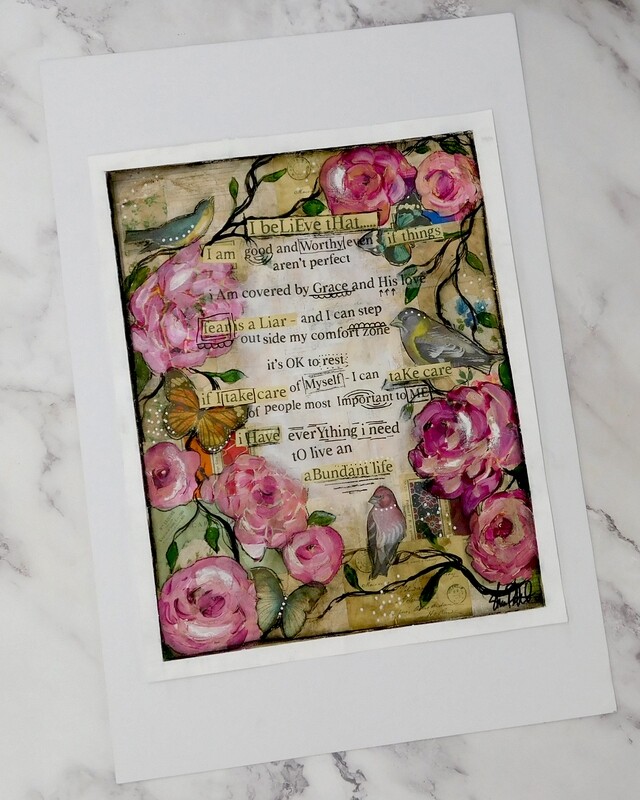 I beLiEve tHat.....
I am good and Worthy even if things
aren't perfect
i Am covered by Grace and His love
fear is a Liar - and I can step
out side my comfort zone
it's OK to rest
if I take care of Myself - I can taKe care
of people most Important to ME
i Have everYthing i need
tO live an
aBundant life